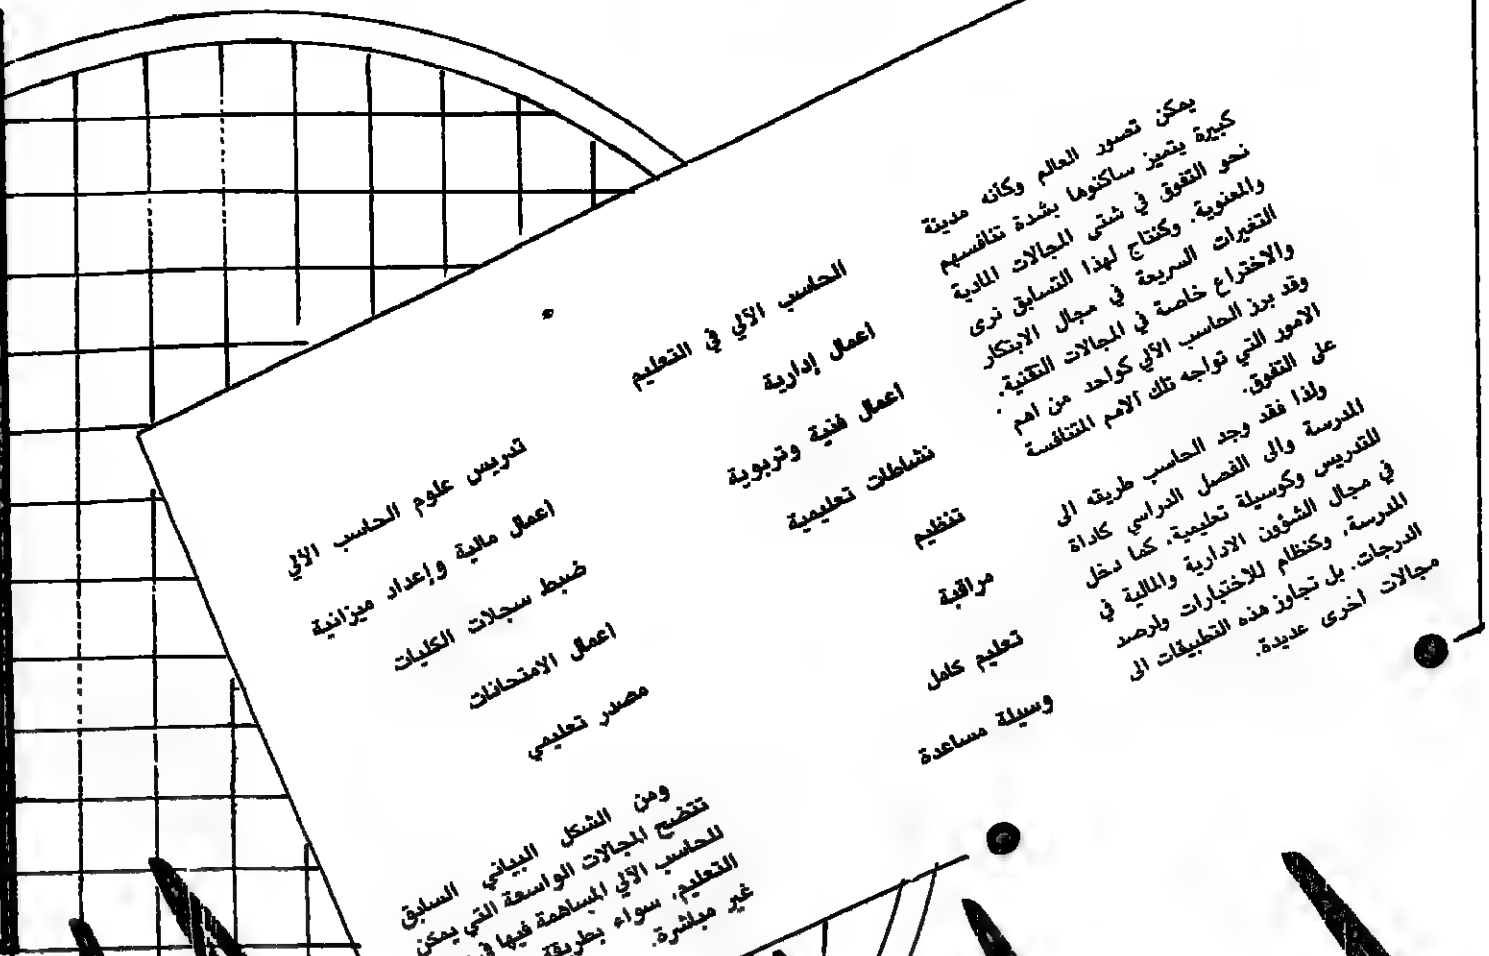 يمكن تصور العالم وكأنه مدينة
كبيرة يتميز ساكنوها بشدة تنافسهم
نحو التفوق في شتى المجالات المادية
والمعنوية. وكنتاج لهذا التسابق نرى
التغيرات السريعة في مجال الابتكار
والاختراع خاصة في المجالات التقنية.
وقد برز الحاسب الآلي كواحد من اهم
الامور التي تواجه تلك الامم المتنافسة
على التفوق.
ولذا فقد وجد الحاسب طريقه الى
المدرسة والى الفصل الدراسي كاداة
للتدريس وكوسيلة تعليمية. كما دخل
في مجال الشؤون الادارية والمالية في
المدرسة، وكنظام للاختبارات ولرصد
الدرجات. بل تجاوز هذه التطبيقات الى
مجالات اخرى عديدة.
الحاسب الآلي في التعليم
اعمال إدارية
اعمال فنية وتربوية
نشاطات تعليمية
تنظيم
مراقبة
تعليم كامل
وسيلة مساعدة
تدريس علوم الحاسب الآلي
اعمال مالية وإعداد ميزانية
ضبط سجلات الكليات
اعمال الامتحانات
مصدر تعليمي
ومن الشكل البياني السابق
تتضح المجالات الواسعة التي يمكن
للحاسب الآلي المساهمة فيها في
التعليم، سواء بطريقة
غير مباشرة.